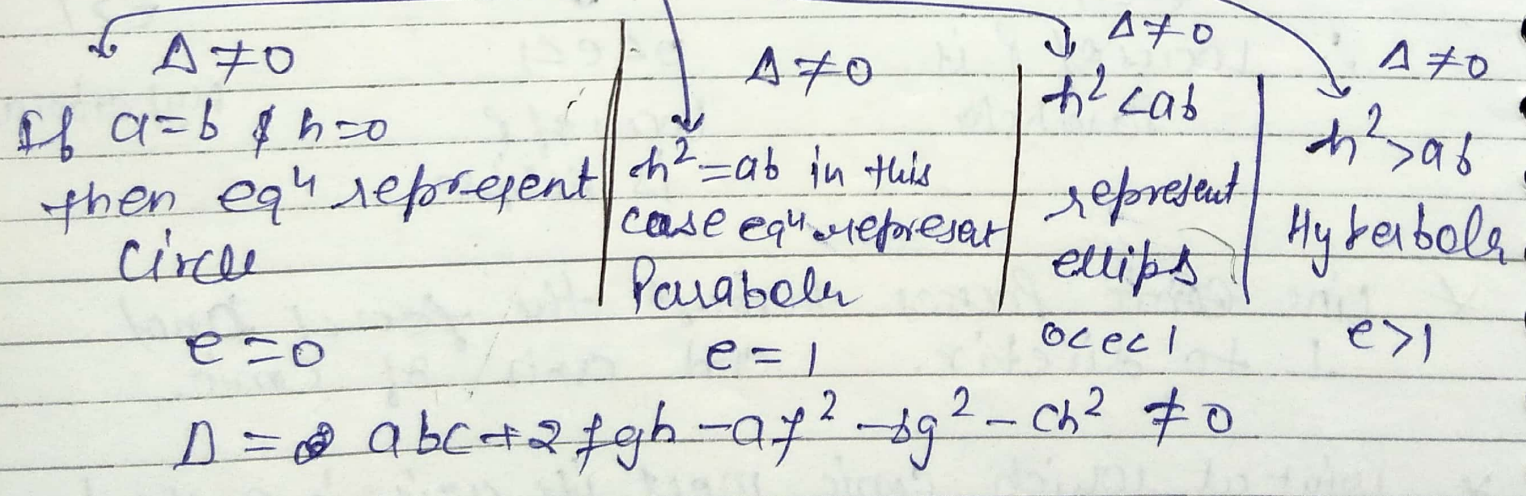 Δ ≠ 0
If a = b & h = 0
then eqⁿ represent
Circle
e = 0
Δ ≠ 0
h² = ab in this
case eqⁿ represent
Parabola
e = 1
Δ ≠ 0
h² < ab
represent
ellips
0<e<1
Δ ≠ 0
h² > ab
Hyperbola
e > 1
Δ = abc + 2fgh - af² - bg² - ch² ≠ 0